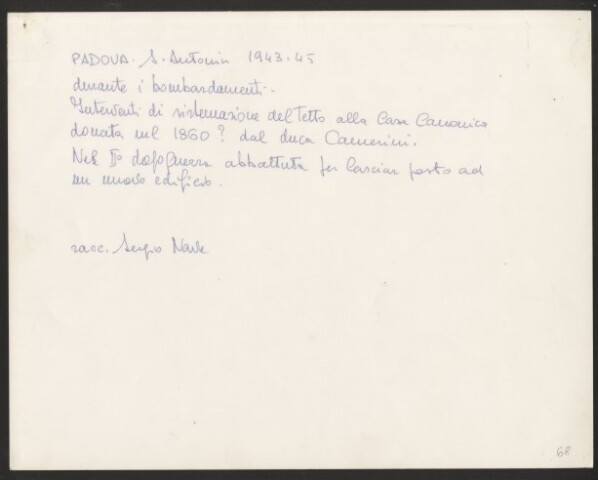 PADOVA. S. Antonin 1943.45
durante i bombardamenti.
Interventi di sistemazione del Tetto alla Casa Canonica
donata nel 1860? dal duca Camerini.
Nel II° dopoguerra abbattuta per lasciar posto ad
un nuovo edificio.
racc. Sergio
68